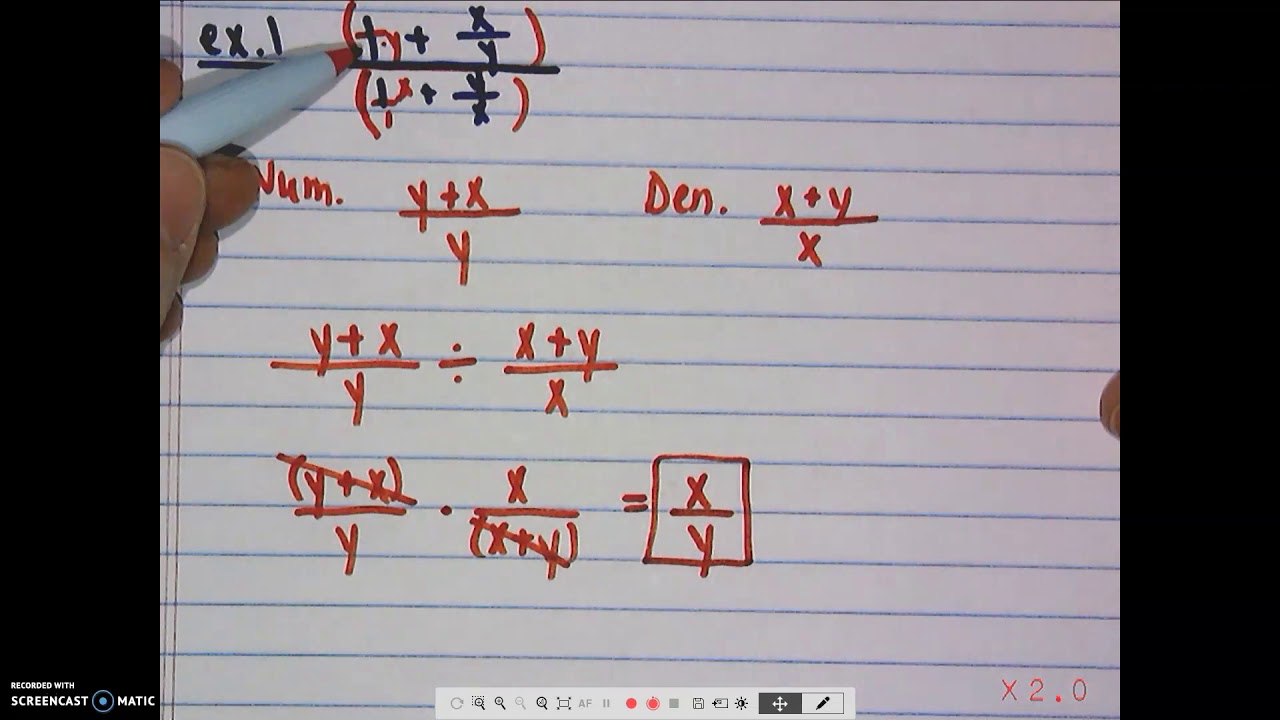 ex.1 (1·y + x/y)
(1·x + y/x)
Num. y + x / y Den. x + y / x
y + x / y ÷ x + y / x
(y + x) / y · x / (x + y) = x / y
X2.0
RECORDED WITH
SCREENCAST MATIC
AF